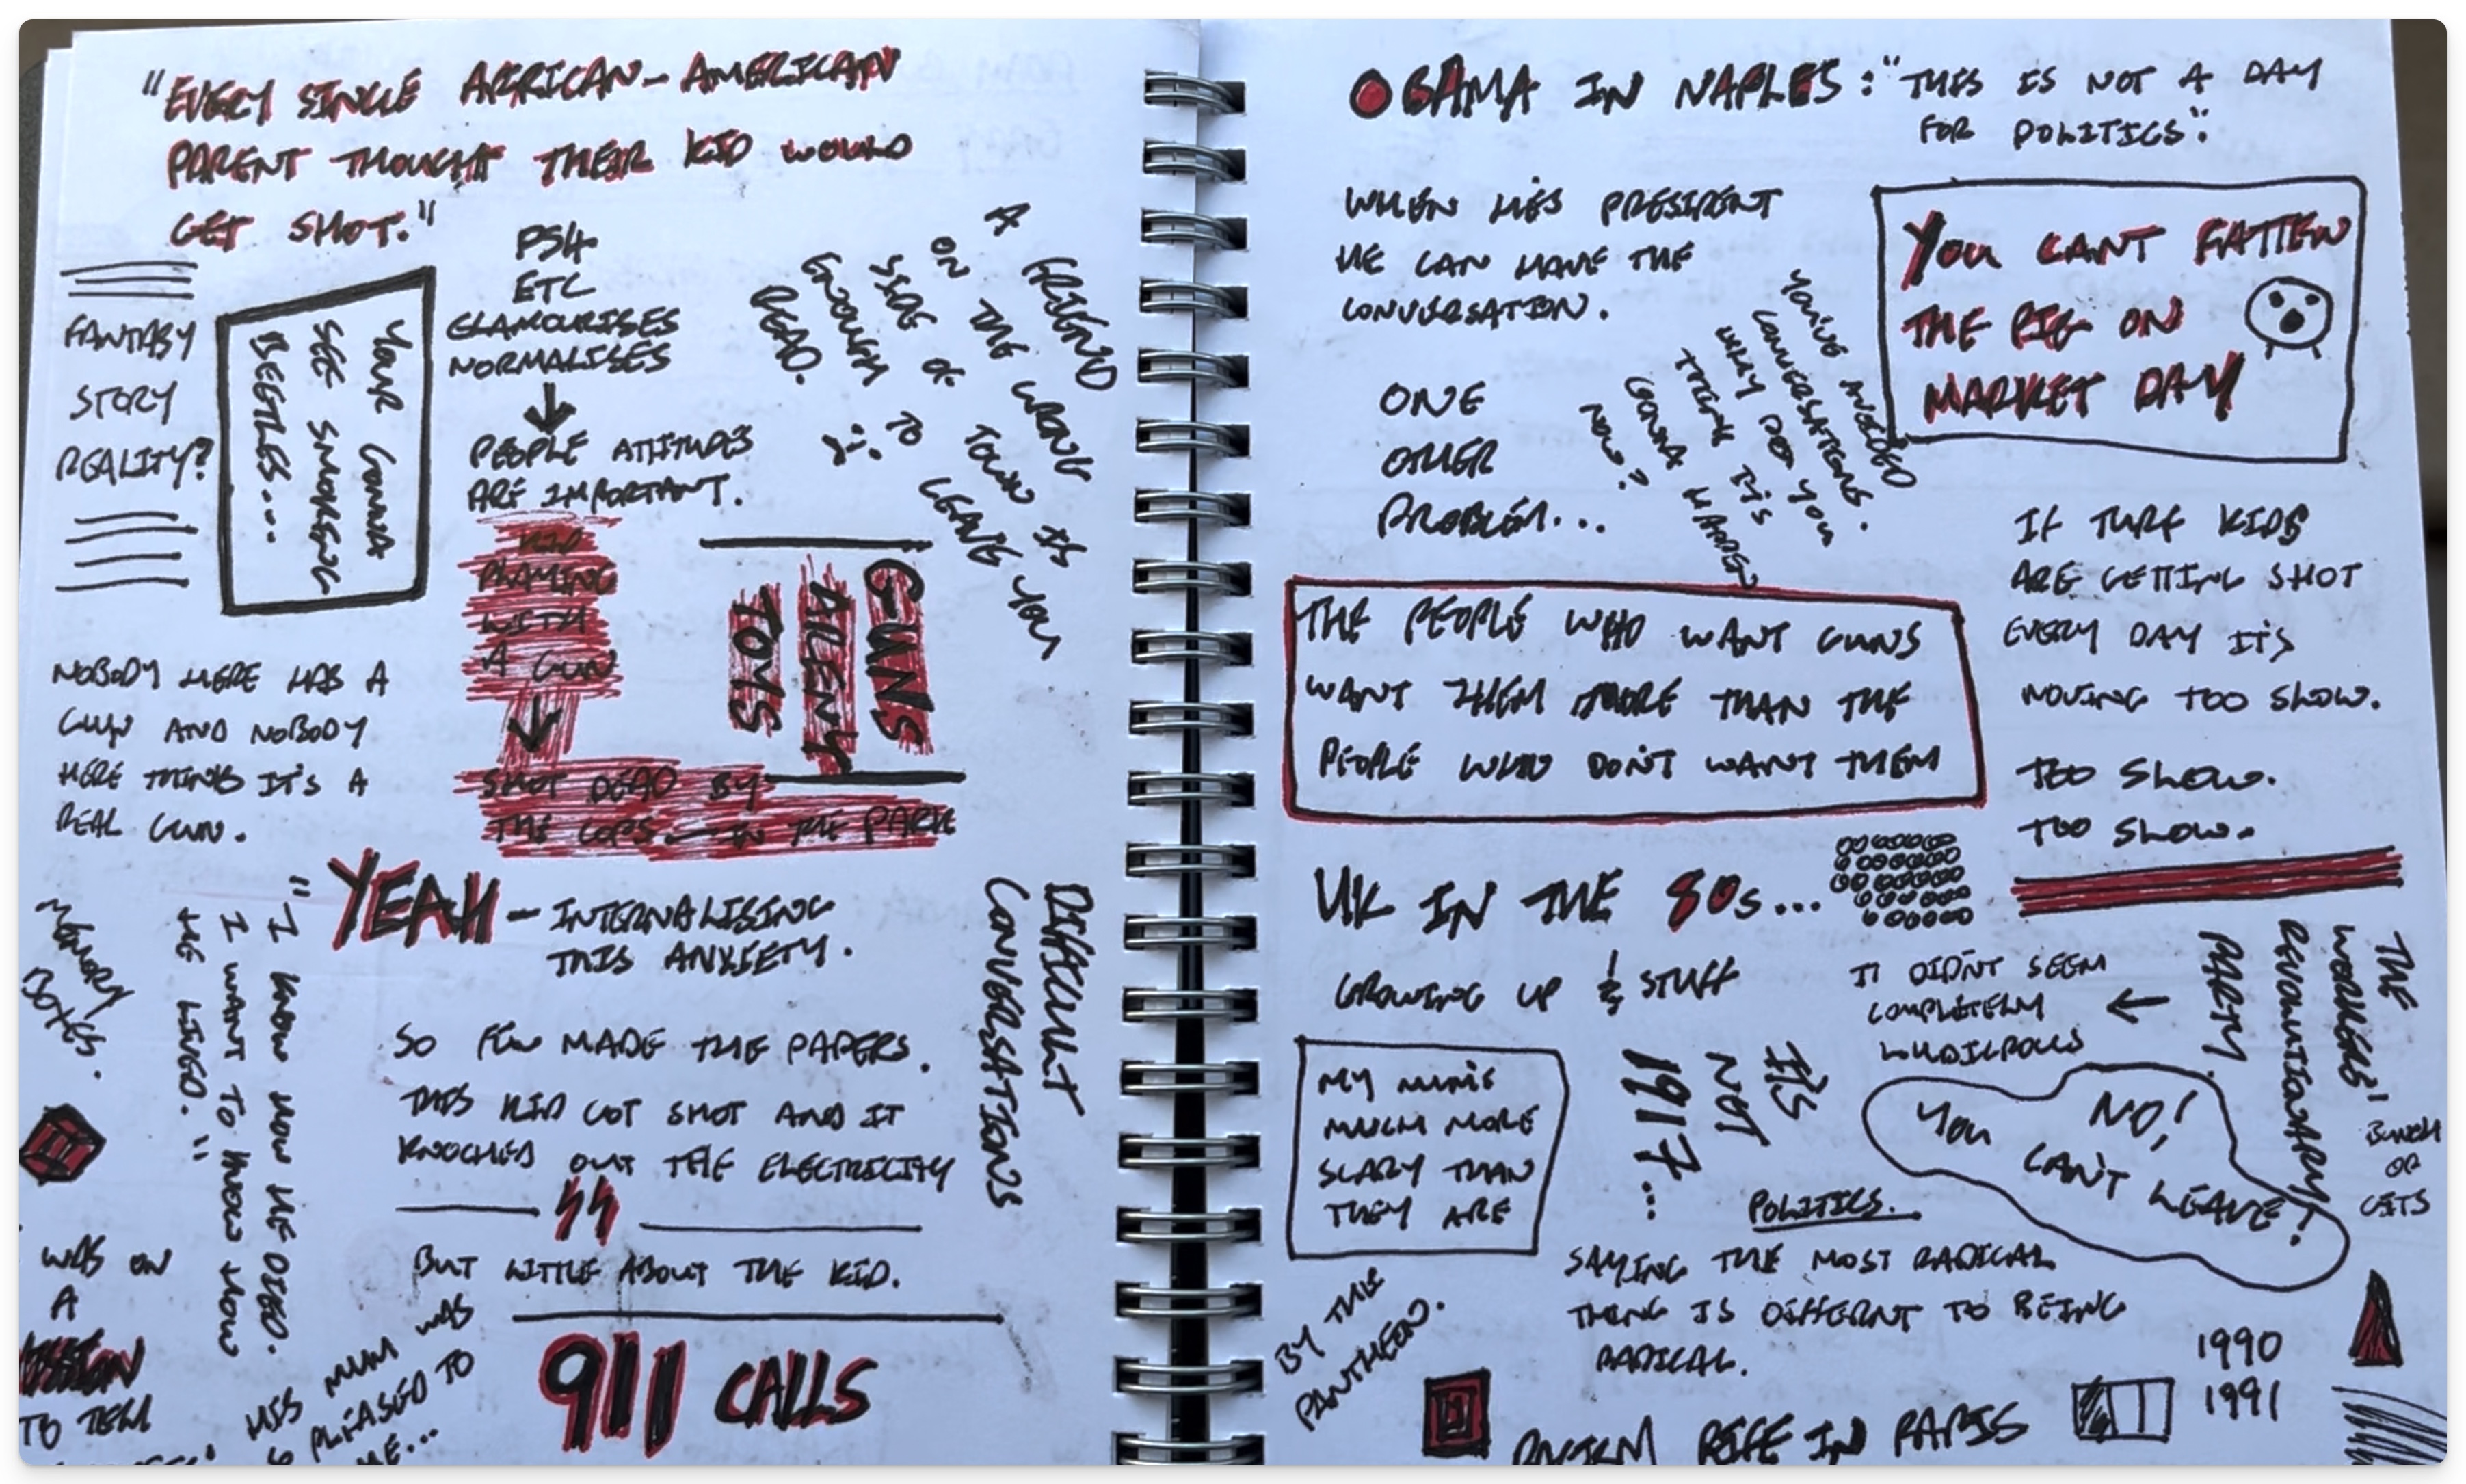 "EVERY SINGLE AFRICAN-AMERICAN
PARENT THOUGHT THEIR KID WOULD
GET SHOT."
FANTASY
STORY
REALITY?
YOUR GONNA
SEE SMOKING
BEETLES...
PS4
ETC
GLAMOURISES
NORMALISES
PEOPLE ATTITUDES
ARE IMPORTANT.
A FRIEND
ON THE WRONG
SIDE OF TOWN IS
ENOUGH TO LEAVE YOU
DEAD.
KID
PLAYING
WITH
A GUN
SHOT DEAD BY
THE COPS - IN THE PARK
GUNS
AREN'T
TOYS
NOBODY HERE HAS A
GUN AND NOBODY
HERE THINKS IT'S A
REAL GUN.
YEAH - INTERNALISING
THIS ANXIETY.
MEMORY
BOXES.
"I KNOW HOW HE DIED.
I WANT TO KNOW HOW
HE LIVED."
DIFFICULT
CONVERSATIONS
SO FEW MADE THE PAPERS.
THIS KID GOT SHOT AND IT
KNOCKED OUT THE ELECTRICITY
BUT LITTLE ABOUT THE KID.
WAS ON
A
TO TELL
HIS MUM WAS
SO PLEASED TO
911 CALLS
OBAMA IN NAPLES: "THIS IS NOT A DAY
FOR POLITICS".
WHEN HE'S PRESIDENT
HE CAN HAVE THE
CONVERSATION.
YOU CANT FATTEN
THE PIG ON
MARKET DAY
YOU'VE AVOIDED
CONVERSATIONS.
WHY DO YOU
THINK IT'S
GONNA HAPPEN
NOW?
ONE
OTHER
PROBLEM...
IF TURF KIDS
ARE GETTING SHOT
EVERY DAY IT'S
MOVING TOO SLOW.
TOO SLOW.
TOO SLOW.
THE PEOPLE WHO WANT GUNS
WANT THEM MORE THAN THE
PEOPLE WHO DON'T WANT THEM
UK IN THE 80s...
GROWING UP & STUFF
IT DIDN'T SEEM
COMPLETELY
LUDICROUS
THE
WORKERS'
REVOLUTIONARY
PARTY.
BUNCH
OF
GITS
MY MUM'S
MUCH MORE
SCARY THAN
THEY ARE
IT'S
NOT
1917...
NO!
YOU CAN'T LEAVE!
POLITICS.
SAYING THE MOST RADICAL
THING IS DIFFERENT TO BEING
RADICAL.
BY THE
PANTHEON.
1990
1991
RIFE IN PARIS